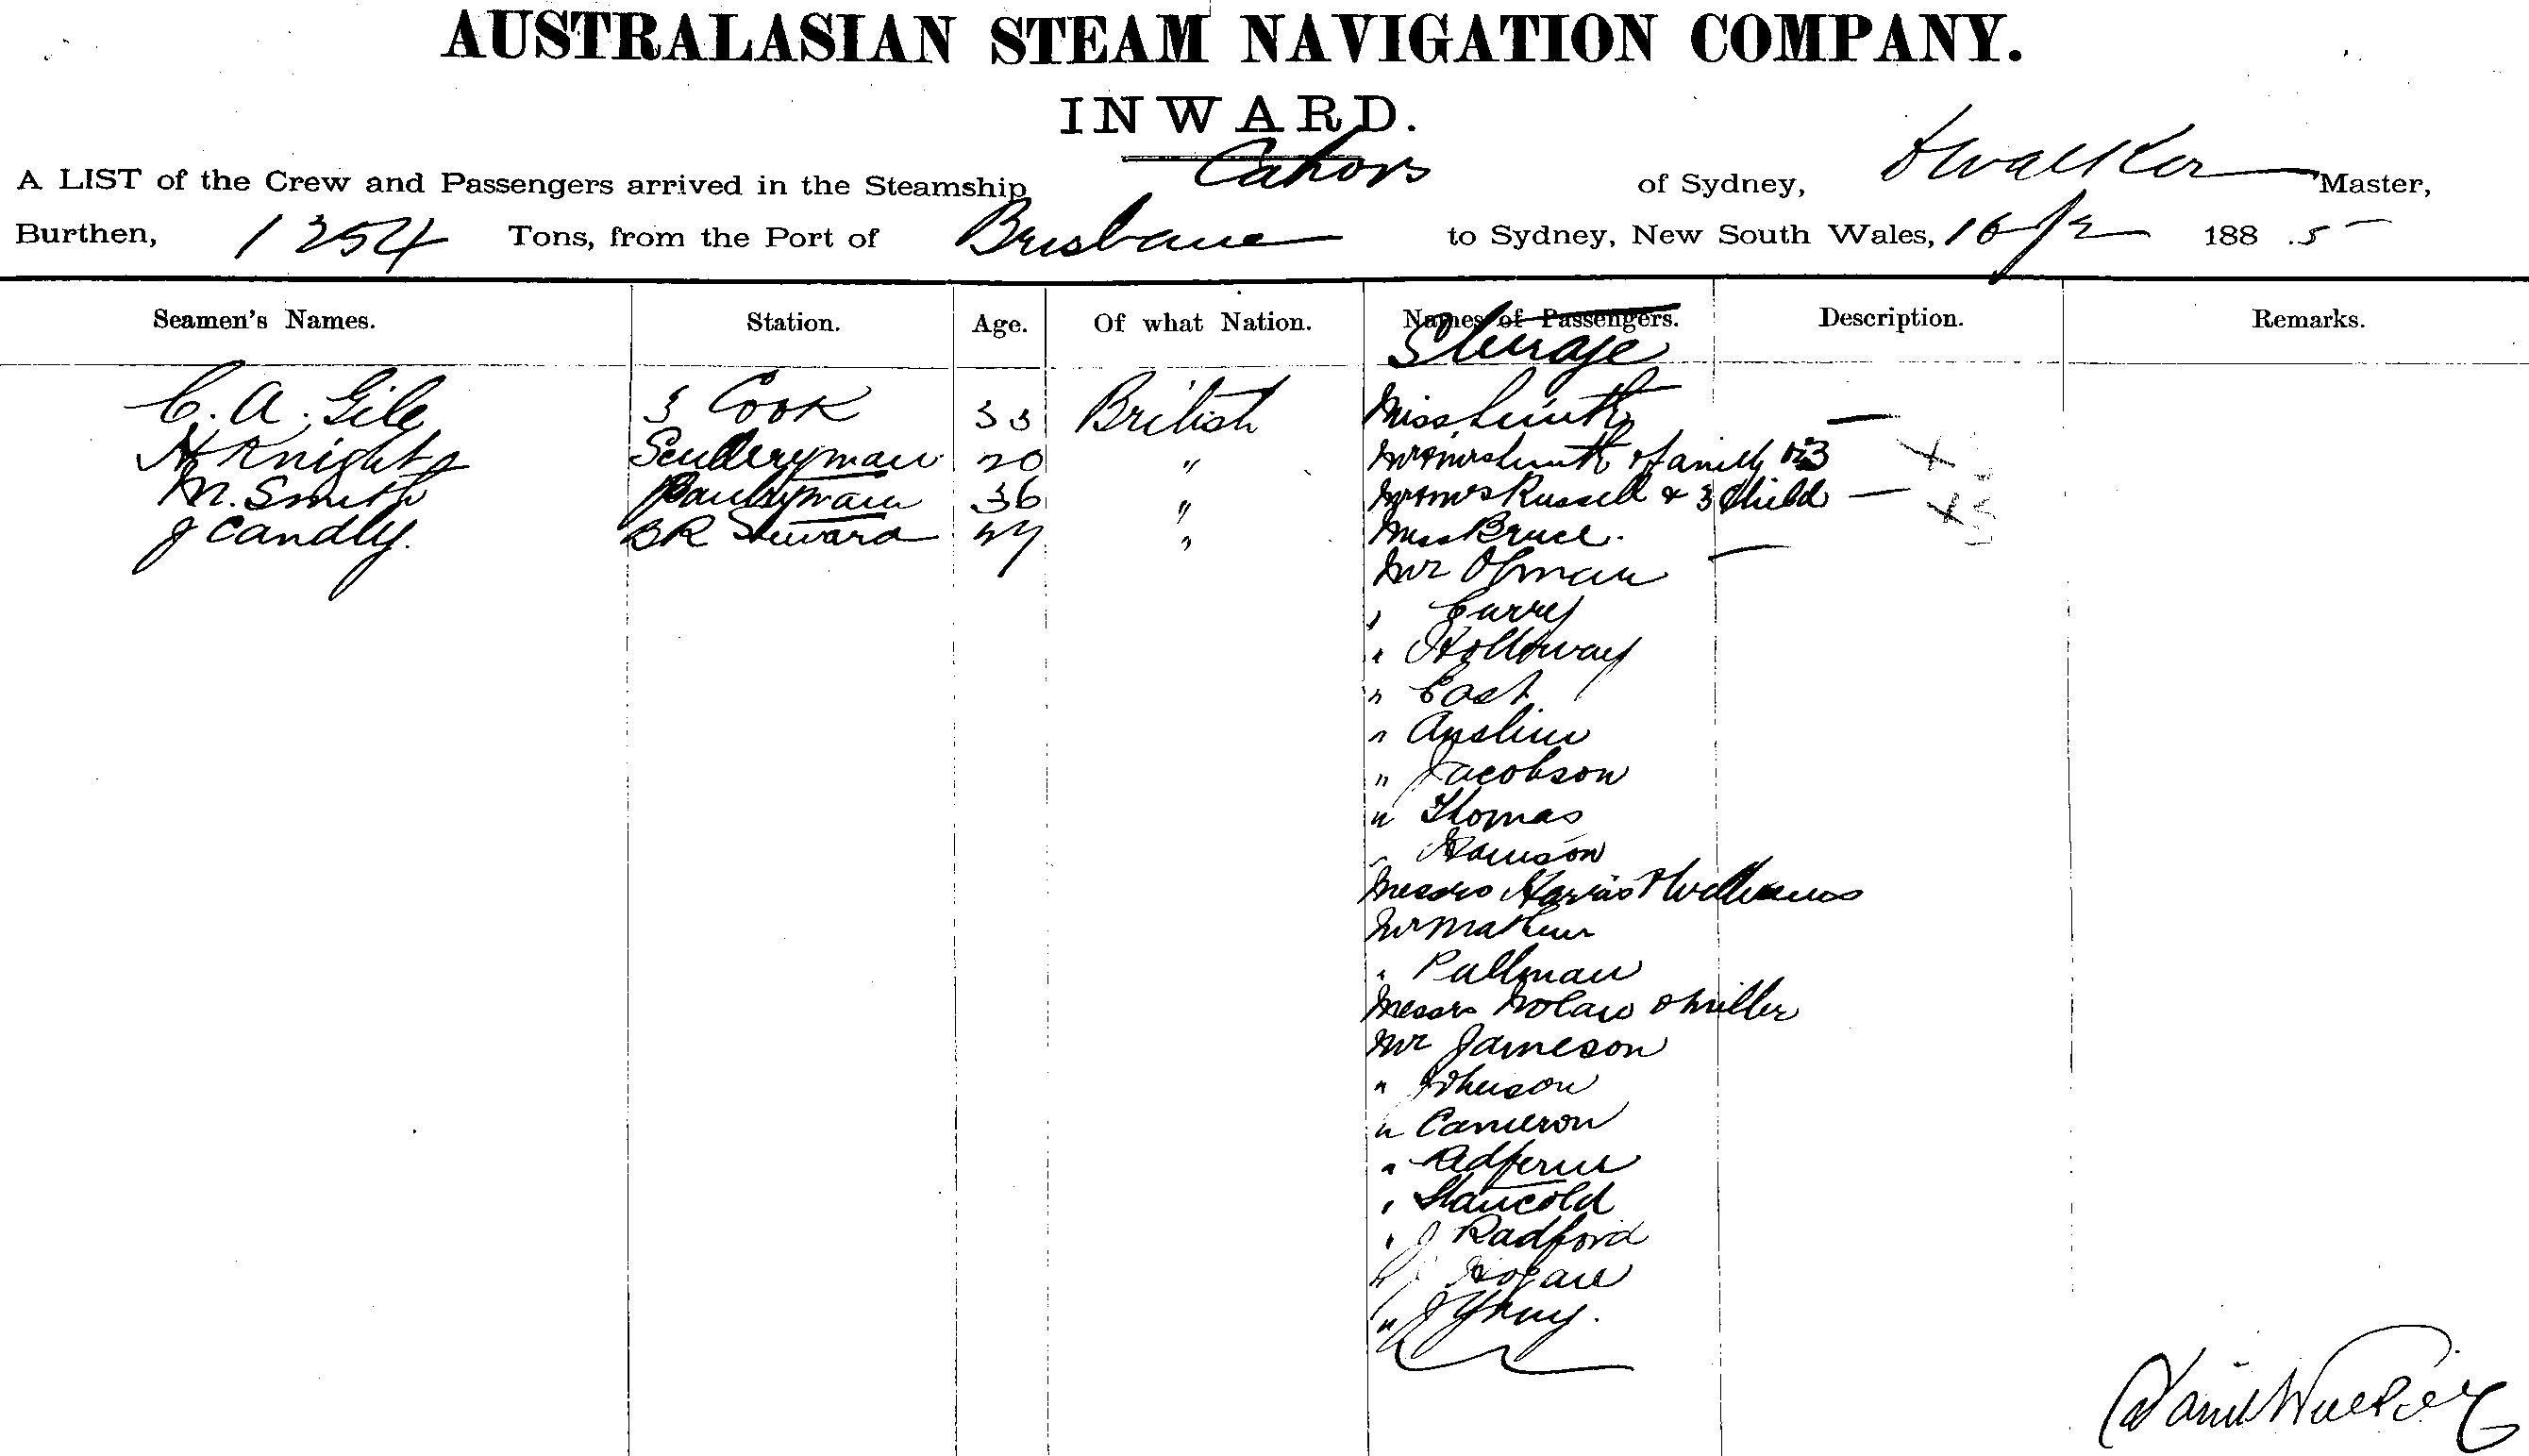 AUSTRALASIAN STEAM NAVIGATION COMPANY.
INWARD.
A LIST of the Crew and Passengers arrived in the Steamship Cahors of Sydney, D Walker Master,
Burthen, 1254 Tons, from the Port of Brisbane to Sydney, New South Wales, 16/2 1885
Seamen's Names. Station. Age. Of what Nation. Names of Passengers. Description. Remarks.
Steerage
C. A. Gile 3 Cook 33 British Miss Smith
H Knight Sculleryman 20 " Mr & Mrs Smith & family
M. Smith Pantryman 36 " Mr & Mrs Russell & 3 Child
J Candly. BR Steward 27 " Miss Bruce.
Mr Osman
" Curry
" Holloway
" East
" Anslin
" Jacobson
" Thomas
" Harrison
Messrs Harris & Williams
Mr
" Pullman
Messrs Nolan & Miller
Mr Jameson
" Johnson
" Cameron
" Redfern
"
" J Radford
" Hogan
" J
Daniel Walker